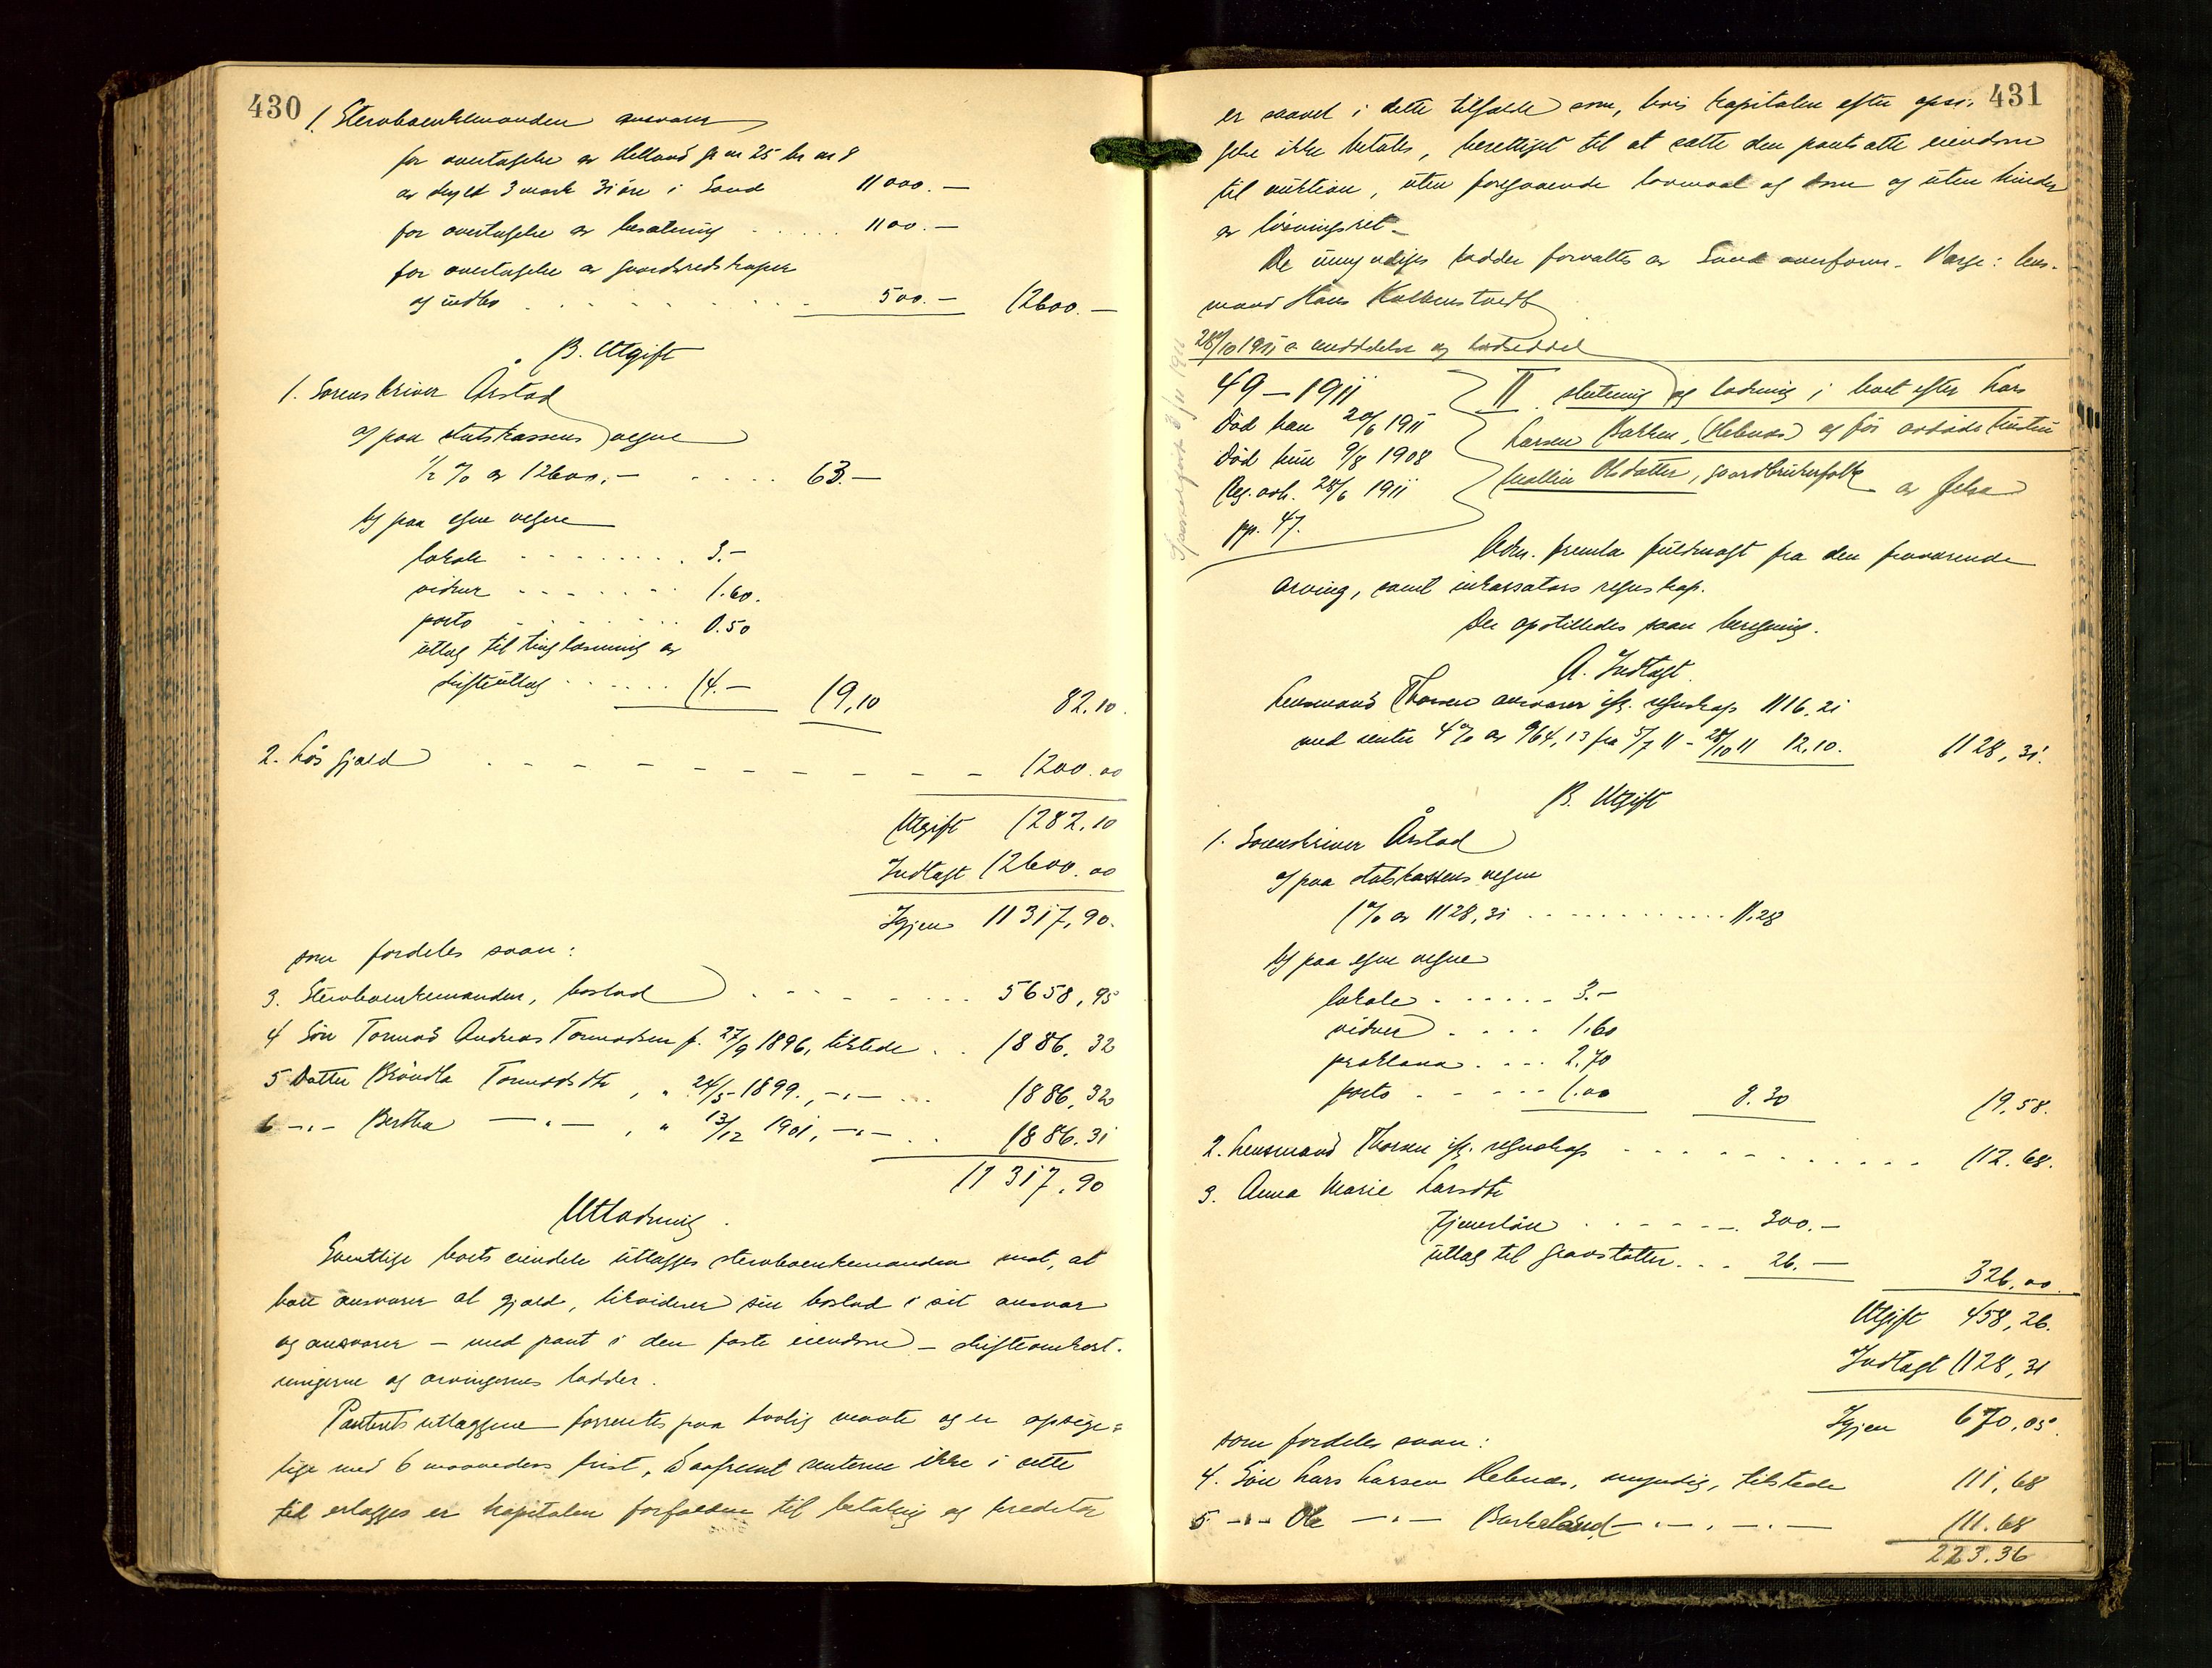 430
1. Stervboenkemanden ansvarer
for overtagelse av Helland gr nr 25 br nr 8
av skyld 3 mark 31 øre i Sand 11000.—
for overtagelse av besætning ..... 1100.—
for overtagelse av gaardsredskaper
og indbo ......... 500.— 12600.—
B. Utgift
1. Sorenskriver Årstad
a) paa statskassens vegne
1/2 % av 12600.— .... 63.—
b) paa egne vegne
lokale ....... 3.—
vidner ...... 1.60.
porto ....... 0.50
utlæg til tinglæsning av
skifteutlæg ...... 14.— 19,10 82.10.
2. Løs gjæld — — — — — — — — 1200.00
Utgift 1282.10
Indtægt 12600.00
Igjen 11317,90.
som fordeles saan:
3. Stervboenkemanden, boslod ........ 5658,95
4 Søn Tormod Andreas Tormodsen f. 27/9 1896, tilstede .. 1886.32
5 Datter Brøndla Tormodsdtr, " 24/5 1899., —"— ... 1886,32
6 —"— Bertha —"—, " 13/12 1901, —"— .. 1886.31
11317.90
Utlodning.
Samtlige boets eiendele utlægges stervboenkemanden mot, at
han ansvarer al gjæld, likviderer sin boslod i sit ansvar
og ansvarer — med pant i den faste eiendom — skifteomkost-
ningerne og arvingernes lodder.
Panteutlæggene forrentes paa lovlig maate og er opsige-
lige med 6 maaneders frist, Saafremt renterne ikke i rette
tid erlægges er kapitalen forfalden til betaling og kreditor
431
er saavel i dette tilfælde som, hvis kapitalen efter opsi-
gelse ikke betales, berettiget til at sætte den pantsatte eiendom
til auktion, uten foregaaende lovmaal og dom og uten hinder
av løsningsret.
De umyndiges lodder forvaltes av Sand overform. Verge: lens-
mand Hans Kolbenstvedt
28/10 1911 a meddelse og lodseddel
49 — 1911
Død han 20/6 1911
Død hun 9/8 1908
Reg. avh. 28/6 1911
pp. 47.
II. slutning og lodning i boet efter Lars
Larsen Bakken, (Hebnes) og før avdøde hustru
Mallin Olsdatter, gaardbrukerfolk av Jelsa
Adm. fremla fuldmagt fra den fraværende
arving, samt inkassators regnskap.
Der opstilledes saan beregning.
A. Indtægt.
Lensmand Thorsen ansvarer ifl. regnskap 1116.21
med renter 4% av 964,13 fra 5/7 11 - 28/10 11 12.10. 1128,31.
B. Utgift
1. Sorenskriver Årstad
a) paa statskassens vegne
1% av 1128,31 ............ 11.28
b) paa egne vegne
lokale ...... 3.—
vidner .... 1.60
proklama .... 2.70
porto ..... 1.00 8.30 19,58.
2. Lensmand Thorsen ifl. regnskap ............ 112.68.
3. Anna Marie Larsdtr
tjenerløn ...... 300.—
utlæg til gravstøtter ... 26.— 326.00.
Utgift 458,26.
Indtægt 1128,31
Igjen 670,05
som fordeles saan:
4. Søn Lars Larsen Hebnes, myndig, tilstede 111,68
5. —"— Ole —"— Barkeland —"—, —"— 111.68
223.36